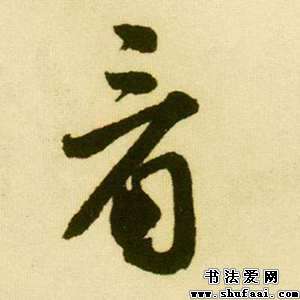 看
书法爱网
www.shufaai.com